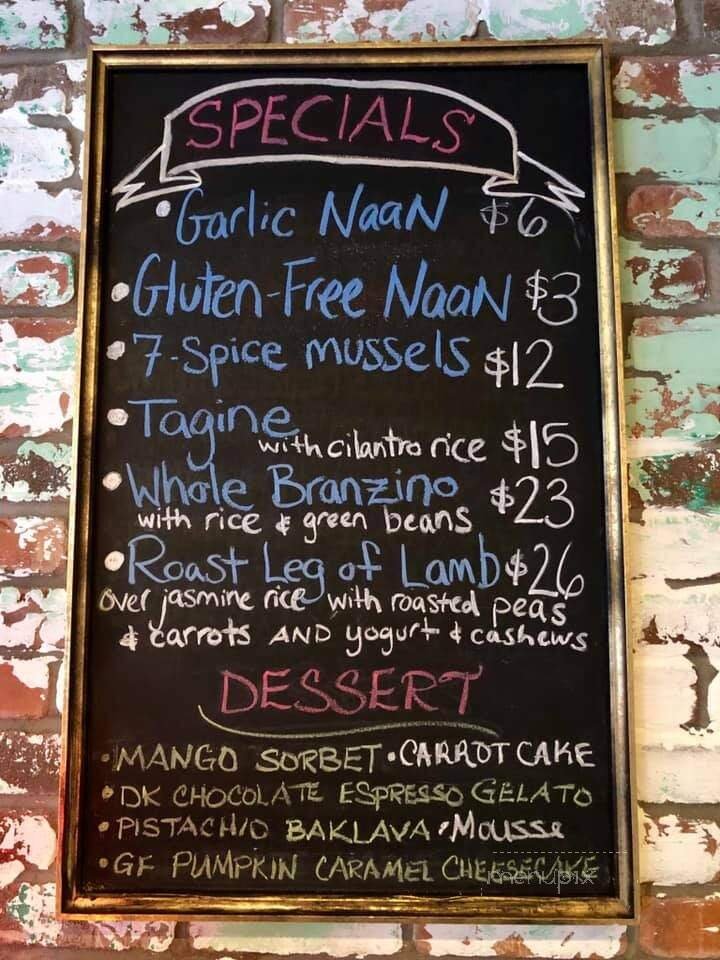 SPECIALS
• Garlic NaaN $6
• Gluten-Free NaaN $3
• 7-Spice mussels $12
• Tagine
with cilantro rice $15
• Whole Branzino $23
with rice & green beans
• Roast Leg of Lamb $26
over jasmine rice with roasted peas
& carrots AND yogurt & cashews
DESSERT
• MANGO SORBET • CARROT CAKE
• DK CHOCOLATE ESPRESSO GELATO
• PISTACHIO BAKLAVA • Mousse
• GF PUMPKIN CARAMEL CHEESECAKE
menupix